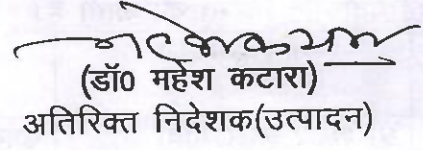 (डॉ0 महेश कटारा)
अतिरिक्त निदेशक(उत्पादन)